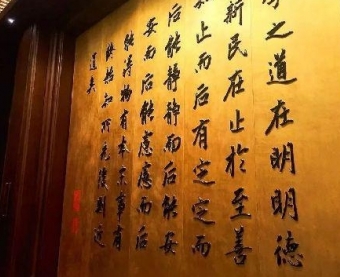 之道在明明德
新民在止於至善
知止而后有定定而
后能靜靜而后能安
安而后能慮慮而后
能得物有本末事有
終始知所先後則近
道矣